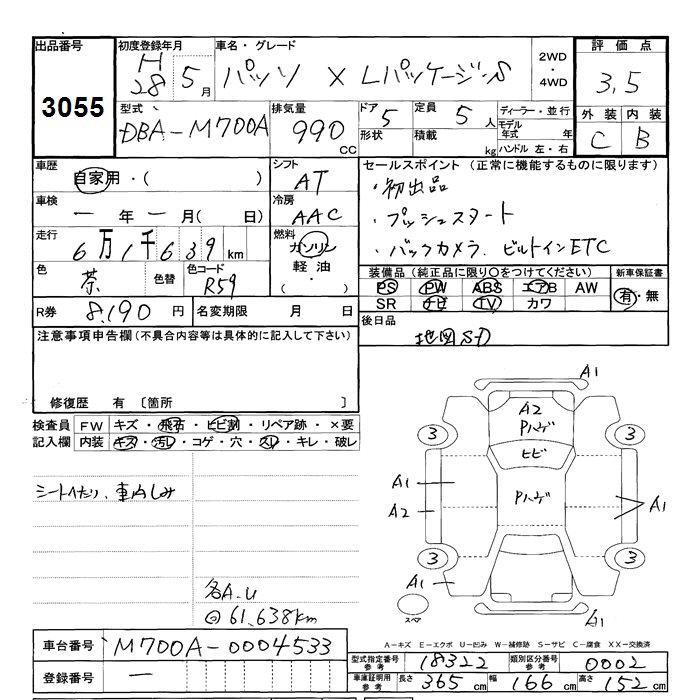 出品番号 初度登録年月 車名・グレード 2WD・4WD 評価点
3055 H28 5月 パッソ X LパッケージS 3.5
型式 排気量 ドア 5 定員 5人 ディーラー・並行 外装 内装
DBA-M700A 990 CC 形状 積載 kg モデル年式 年 C B
ハンドル 左・右
車歴 自家用・( ) シフト AT セールスポイント (正常に機能するものに限ります)
車検 一年一月( 日) 冷房 AAC ・初出品
・プッシュスタート
走行 6万1千639km 燃料 ガソリン 軽油・( ) ・バックカメラ、ビルトインETC
色 茶 色替 色コード R59 装備品(純正品に限り○をつけてください) 新車保証書
PS PW ABS エアB AW 有・無
SR ナビ TV カワ
R券 8,190円 名変期限 月 日 後日品
地図SD
注意事項申告欄(不具合内容等は具体的に記入して下さい)
修復歴 有 〔箇所 〕
検査員 FW キズ・飛石・ヒビ割・リペア跡・×要
記入欄 内装 キズ・汚レ・コゲ・穴・スレ・キレ・破レ
シートへたり、車内しみ
各A.U
◎61,638km
A1
A2
Pハゲ
3 3
ヒビ
A1 Pハゲ A1
A2
3 3
A1
スペア A1
A-キズ E-エクボ U-凹み W-補修跡 S-サビ C-腐食 XX-交換済
車台番号 M700A-0004533
型式指定番号 参考 18322 類別区分番号 参考 0002
登録番号 一
車庫証明用 参考 長さ 365cm 幅 166cm 高さ 152cm